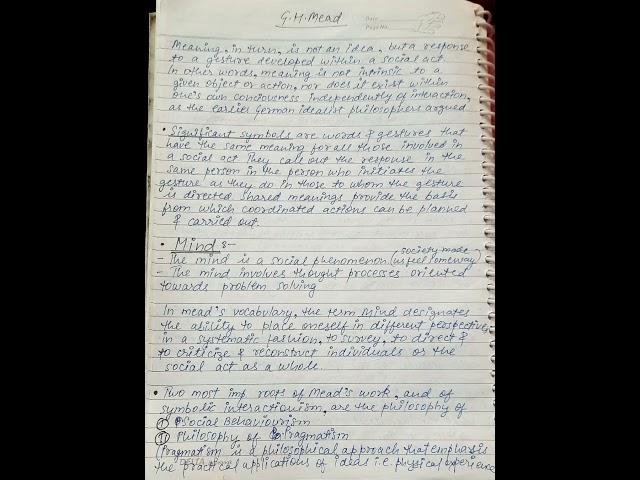 G.H.Mead
Date
Page No.
Meaning, in turn, is not an idea, but a response
to a gesture developed within a social act
In other words, meaning is not intrinsic to a
given object or action, nor does it exist within
one's own conciousness independently of interaction,
as the earlier German idealist philosophers argued
• Significant symbols are words & gestures that
have the same meaning for all those involved in
a social act They call out the response in the
same person in the person who initiates the
gesture as they do in those to whom the gesture
is directed shared meanings provide the basis
from which coordinated actions can be planned
& carried out.
• Mind :-
society made
- The mind is a social phenomenon (us feel someway)
- The mind involves thought processes oriented
towards problem solving
In mead's vocabulary, the term Mind designates
the ability to place oneself in different perspectives
in a systematic fashion, to survey, to direct &
to criticize & reconstruct individuals or the
social act as a whole.
• Two most imp roots of Mead's work, and of
symbolic interactionism, are the philosophy of
(I) Social Behaviourism
(II) Philosophy of Pragmatism
(Pragmatism is a philosophical approach that emphasis
the practical applications of ideas i.e. physical experience
DELTA